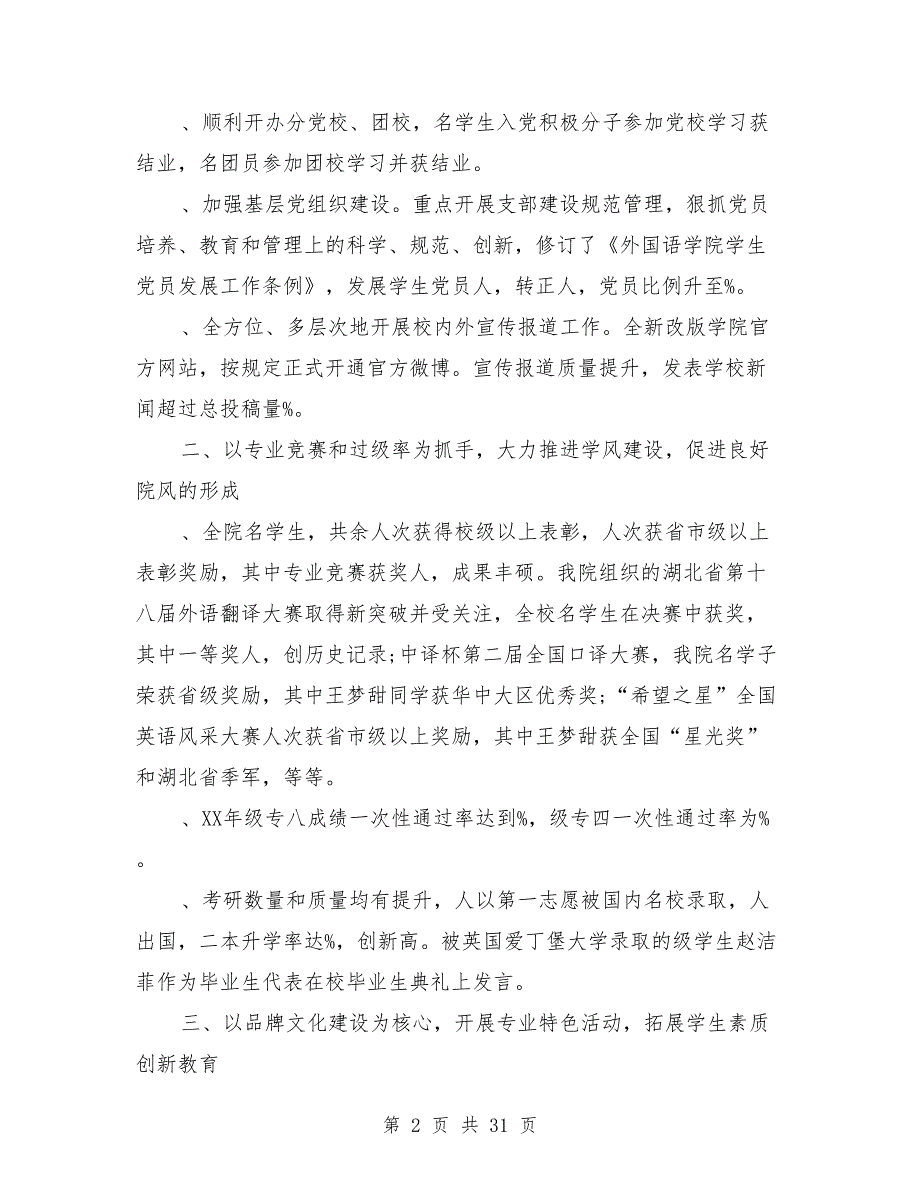 、顺利开办分党校、团校，名学生入党积极分子参加党校学习获
结业，名团员参加团校学习并获结业。
、加强基层党组织建设。重点开展支部建设规范管理，狠抓党员
培养、教育和管理上的科学、规范、创新，修订了《外国语学院学生
党员发展工作条例》，发展学生党员人，转正人，党员比例升至%。
、全方位、多层次地开展校内外宣传报道工作。全新改版学院官
方网站，按规定正式开通官方微博。宣传报道质量提升，发表学校新
闻超过总投稿量%。
二、以专业竞赛和过级率为抓手，大力推进学风建设，促进良好
院风的形成
、全院名学生，共余人次获得校级以上表彰，人次获省市级以上
表彰奖励，其中专业竞赛获奖人，成果丰硕。我院组织的湖北省第十
八届外语翻译大赛取得新突破并受关注，全校名学生在决赛中获奖，
其中一等奖人，创历史记录;中译杯第二届全国口译大赛，我院名学子
荣获省级奖励，其中王梦甜同学获华中大区优秀奖;“希望之星”全国
英语风采大赛人次获省市级以上奖励，其中王梦甜获全国“星光奖”
和湖北省季军，等等。
、XX年级专八成绩一次性通过率达到%，级专四一次性通过率为%
。
、考研数量和质量均有提升，人以第一志愿被国内名校录取，人
出国，二本升学率达%，创新高。被英国爱丁堡大学录取的级学生赵洁
菲作为毕业生代表在校毕业生典礼上发言。
三、以品牌文化建设为核心，开展专业特色活动，拓展学生素质
创新教育
第 2 页 共 31 页